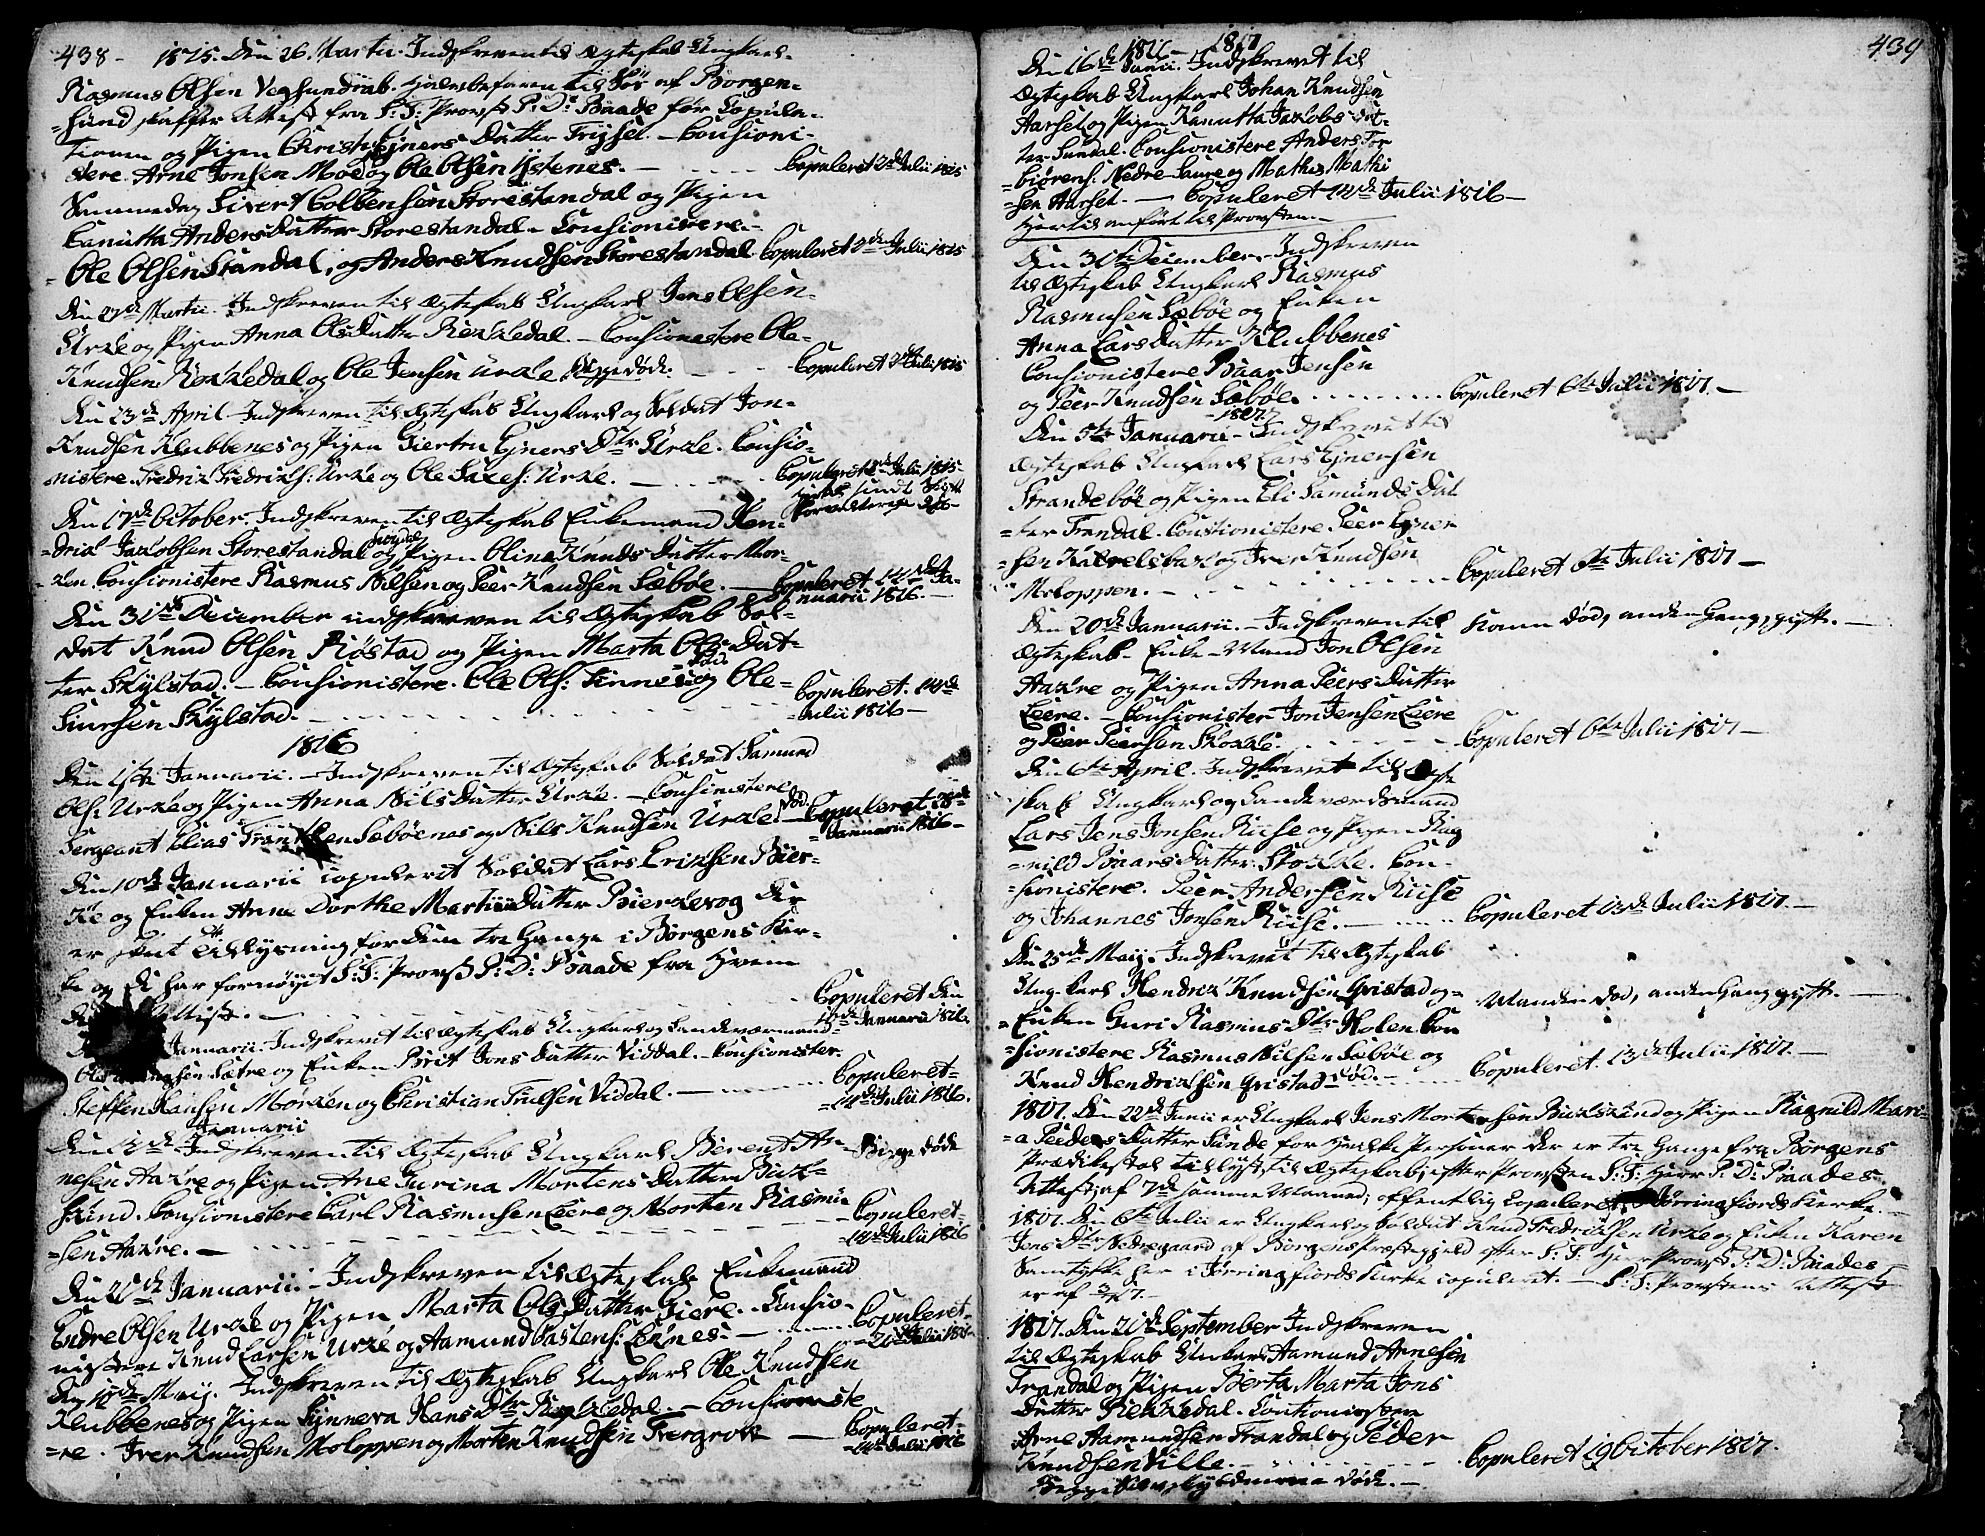 438 - 1815. Den 26 Martii. Indskreven til Ægteskab Ungkarl
Rasmus Olsen Vegsundrab. hjelmbefaren til Søe af Borgen-
=sund skaffer Attest fra S: T: Provst P: D: Baade før Copula-
tionen og Pigen Christi Ejners Datter Trysel. - Causioni-
stere Arne Jonsen Moe og Ole Olsen Ystenes. -
Copuleret 2de Julii 1815
Sammedag Sivert Colbensen Storestandal og Pigen
Canutta Anders Datter Storestandal. - Causionistere -
Ole Olsen Standal, og Anders Knudsen Storestandal
Copuleret 2de Julii 1815
Den 27de Martii. Indskreven til Ægteskab Ungkarl Jens Olsen
Urke og Pigen Anna Ols Datter Rekkedal. - Causionistere Ole
Knudsen Rekkedal og Ole Jensen Urke Begge døde.
Copuleret 2de Julii 1815
Den 23de April Indskreven til Ægteskab Ungkarl og Soldat Jon
Knudsen Klubbenes og Pigen Giertru Ejners Dtr Urke. Causio-
nistere. Fredrik Fredriks: Urke og Ole Saxes: Urke. -
Copuleret 2de Julii 1815
Den 17de October. Indskreven til Ægteskab Enkemand Hen-
drik Jacobsen Storestandal og Pigen Oline Knuds Datter Mor-
ken Causionistere Rasmus Nilsen og Peer Knudsen Sæbøe. -
Copuleret 14de Ja-
nuarii 1816. -
Den 31de December indskreven til Ægteskab Sol-
dat Knud Olsen Røstad og Pigen Marta Ols Dat-
ter Skylstad. - Causionistere. Ole Ols: Finnes død og Ole
Siursen Skylstad. -
Copuleret. 14de
Julii 1816 -
1816
Den 1ste Januarii. - Indskreven til Ægteskab Soldat Samund
Ols: Urke og Pigen Anna Nils Datter Urke. - Causionistere
Sergeant Elias Frantzen Sæbøenes og Nils Knudsen Urke. død
Copuleret
Januarii 1816 -
Den 10de Januarii copuleret Soldat Lars Erixsen Bier-
ke og Enken Anne Dorthe Martiin Datter Bierkevog Der
er skeet Tillysning for dem tre Gange i Borgens Kir-
ke og de har fornøyet S: T: Provst P: D: Baade fra hvem
Attest. -
Copuleret den
10de Januarii 1816.
Januarii. Indskrevet til Ægteskab Ungkarl og Landeværnmand
Sætre og Enken Brit Jons Datter Viddal. - Causionister.
Steffen Hansen Morken og Christian Truelsen Viddal. -
Copuleret
14de Julii 1816.
Januarii
Den 12de Indskreven til Ægteskab Ungkarl Berent Ar-
nesen Aakre og Pigen Ane Gurina Mortens Datter Buk-
sund. Causionistere Carl Rasmusen Leire og Morten Rasmu-
=sen Aakre. -
Begge døde
Copuleret
14de Julii 1816
Den 21de Januarii - Indskreven til Ægteskab Enkemand
Endre Olsen Urke og Pigen Marta Ols Datter Leere. - Causio-
nistere Knud Larsen Urke og Aamund Castens: Leknes. -
Copuleret
21de Julii 1816
Den 10de Maij. Indskreven til Ægteskab Ungkarl Ole Knudsen
Klubbenes og Pigen Synneva Hans Dtr Rekkedal. - Causioniste
=re. Iver Knudsen Moloppen og Morten Knudsen Frergrov -
Copuleret
14de Julii 1816
439
1816 - 1817
Den 16de Junii. Indskrevet til
Ægteskab Ungkarl Johan Knudsen
Aarset og Pigen Kanutta Jacobs Dat-
ter Sundal. Causionistere Anders Tor
=biørens: Nedre Saure og Mathis Mathi
=sen Aarset. - Copuleret 14de Julii 1816 -
Hertil anført til Provsten. -
Den 31te December Indskreven
til Ægteskab Ungkarl Rasmus
Rasmusen Sæbøe og Enken
Anna Lars Datter Klubbenes
Causionistere Baar Jensen
og Peer Knudsen Sæbøe.
Copuleret 6te Julii 1817. -
- 1817
Den 5te Januarii - Indskrevet til
Ægteskab Ungkarl Lars Ejnersen
Strandebøe og Pigen Eli Samunds Dat
=ter Trandal. Caustionistere Peer Ejner
sen Kærelsbak og Iver Knudsen
Moloppen. -
Copuleret 6te Julii 1817 -
Den 20de Januarii. - Indskreven til
Ægteskab Enke-Mand Jon Olsen
Aakre og Pigen Anna Peers Datter
Leere. - Causionister Jon Jensen Leere
og Peer Peersen Skokke.
Konen død, anden Gang gift. -
Copuleret 6te Julii 1817 -
Den 6te April. Indskrevet til Ægte
skab Ungkarl og Landeværdsmand
Lars Jens Jonsen Riise og Pigen Rag
=nild Baars Datter Skokke. Cau-
=sionistere. Peer Andersen Riise
og Johannes Jonsen Riise. -
Copuleret 13de Julii 1817. -
Den 25de Maij. Indskrevet til Ægteskab
Ungkarl Hendrik Knudsen Qvistad og
=Enken Guri Rasmus Dtr Holen. Cau
=sionistere Rasmus Nilsen Sæbøe og
Knud Hendriksen Qvistad død. -
Manden død, anden Gang gift. -
Copuleret. 13de Julii 1817. -
1817. Den 22de Junii er Ungkarl Jens Mortensen Buksund og Pigen Ragnild Mari-
=a Peeders Datter Sunde for hvilke Personer der er tre Gange fra Borgens
Prædikestol tillyst til Ægteskab, efter Provsten S: T: Herr P: D: Baades
Attest, af 7de samme Maaned; offentlig Copuleret i Jørringfiords Kierke.
1817. Den 6te Julii er Ungkarl og Soldat Knud Fredriksen Urke og Enken Karen
Jens Dtr Nedregaard af Borgens Præstegjeld efter S: T: Herr Provst P: D: Baades
Samtykke her i Jørringfiords Kirke copuleret. - S: T: Provstens Attest
er af
1817. Den 21de September Indskreven
til Ægteskab Ungkarl Aamund Arnesen
Trandal og Pigen Berta Marta Jons
Datter Rekkedal. Cautionister
Arne Aamundsen Trandal og Peder
Knudsen Ville. -
Copuleret 19 October 1817.
Begge døde. -